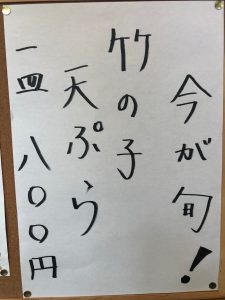 今が旬!
竹の子
天ぷら
一皿 八〇〇円